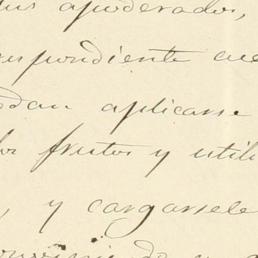 sus apoderados,
espondiente
dan aplicarse
los frutos y utili
, y cargarsele